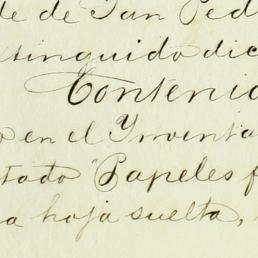 de de San Ped
stinguido dic
Contenid
o en el Ynventa
tado "Papeles f
a hoja suelta,